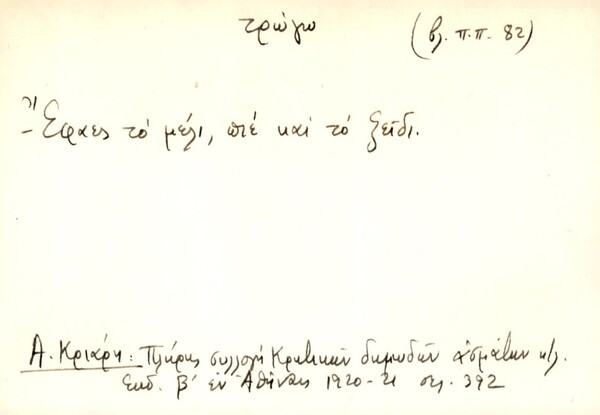 τρώγω (βλ. π.π. 82)
- Ἔφαες τό μέλι, πιέ καί τό ξεῖδι.
Α. Κριάρη: Πλήρης συλλογή Κρητικῶν δημωδῶν ἀσμάτων κτλ.
Ἐκδ. β' ἐν Ἀθήναις 1920-21 σελ. 392